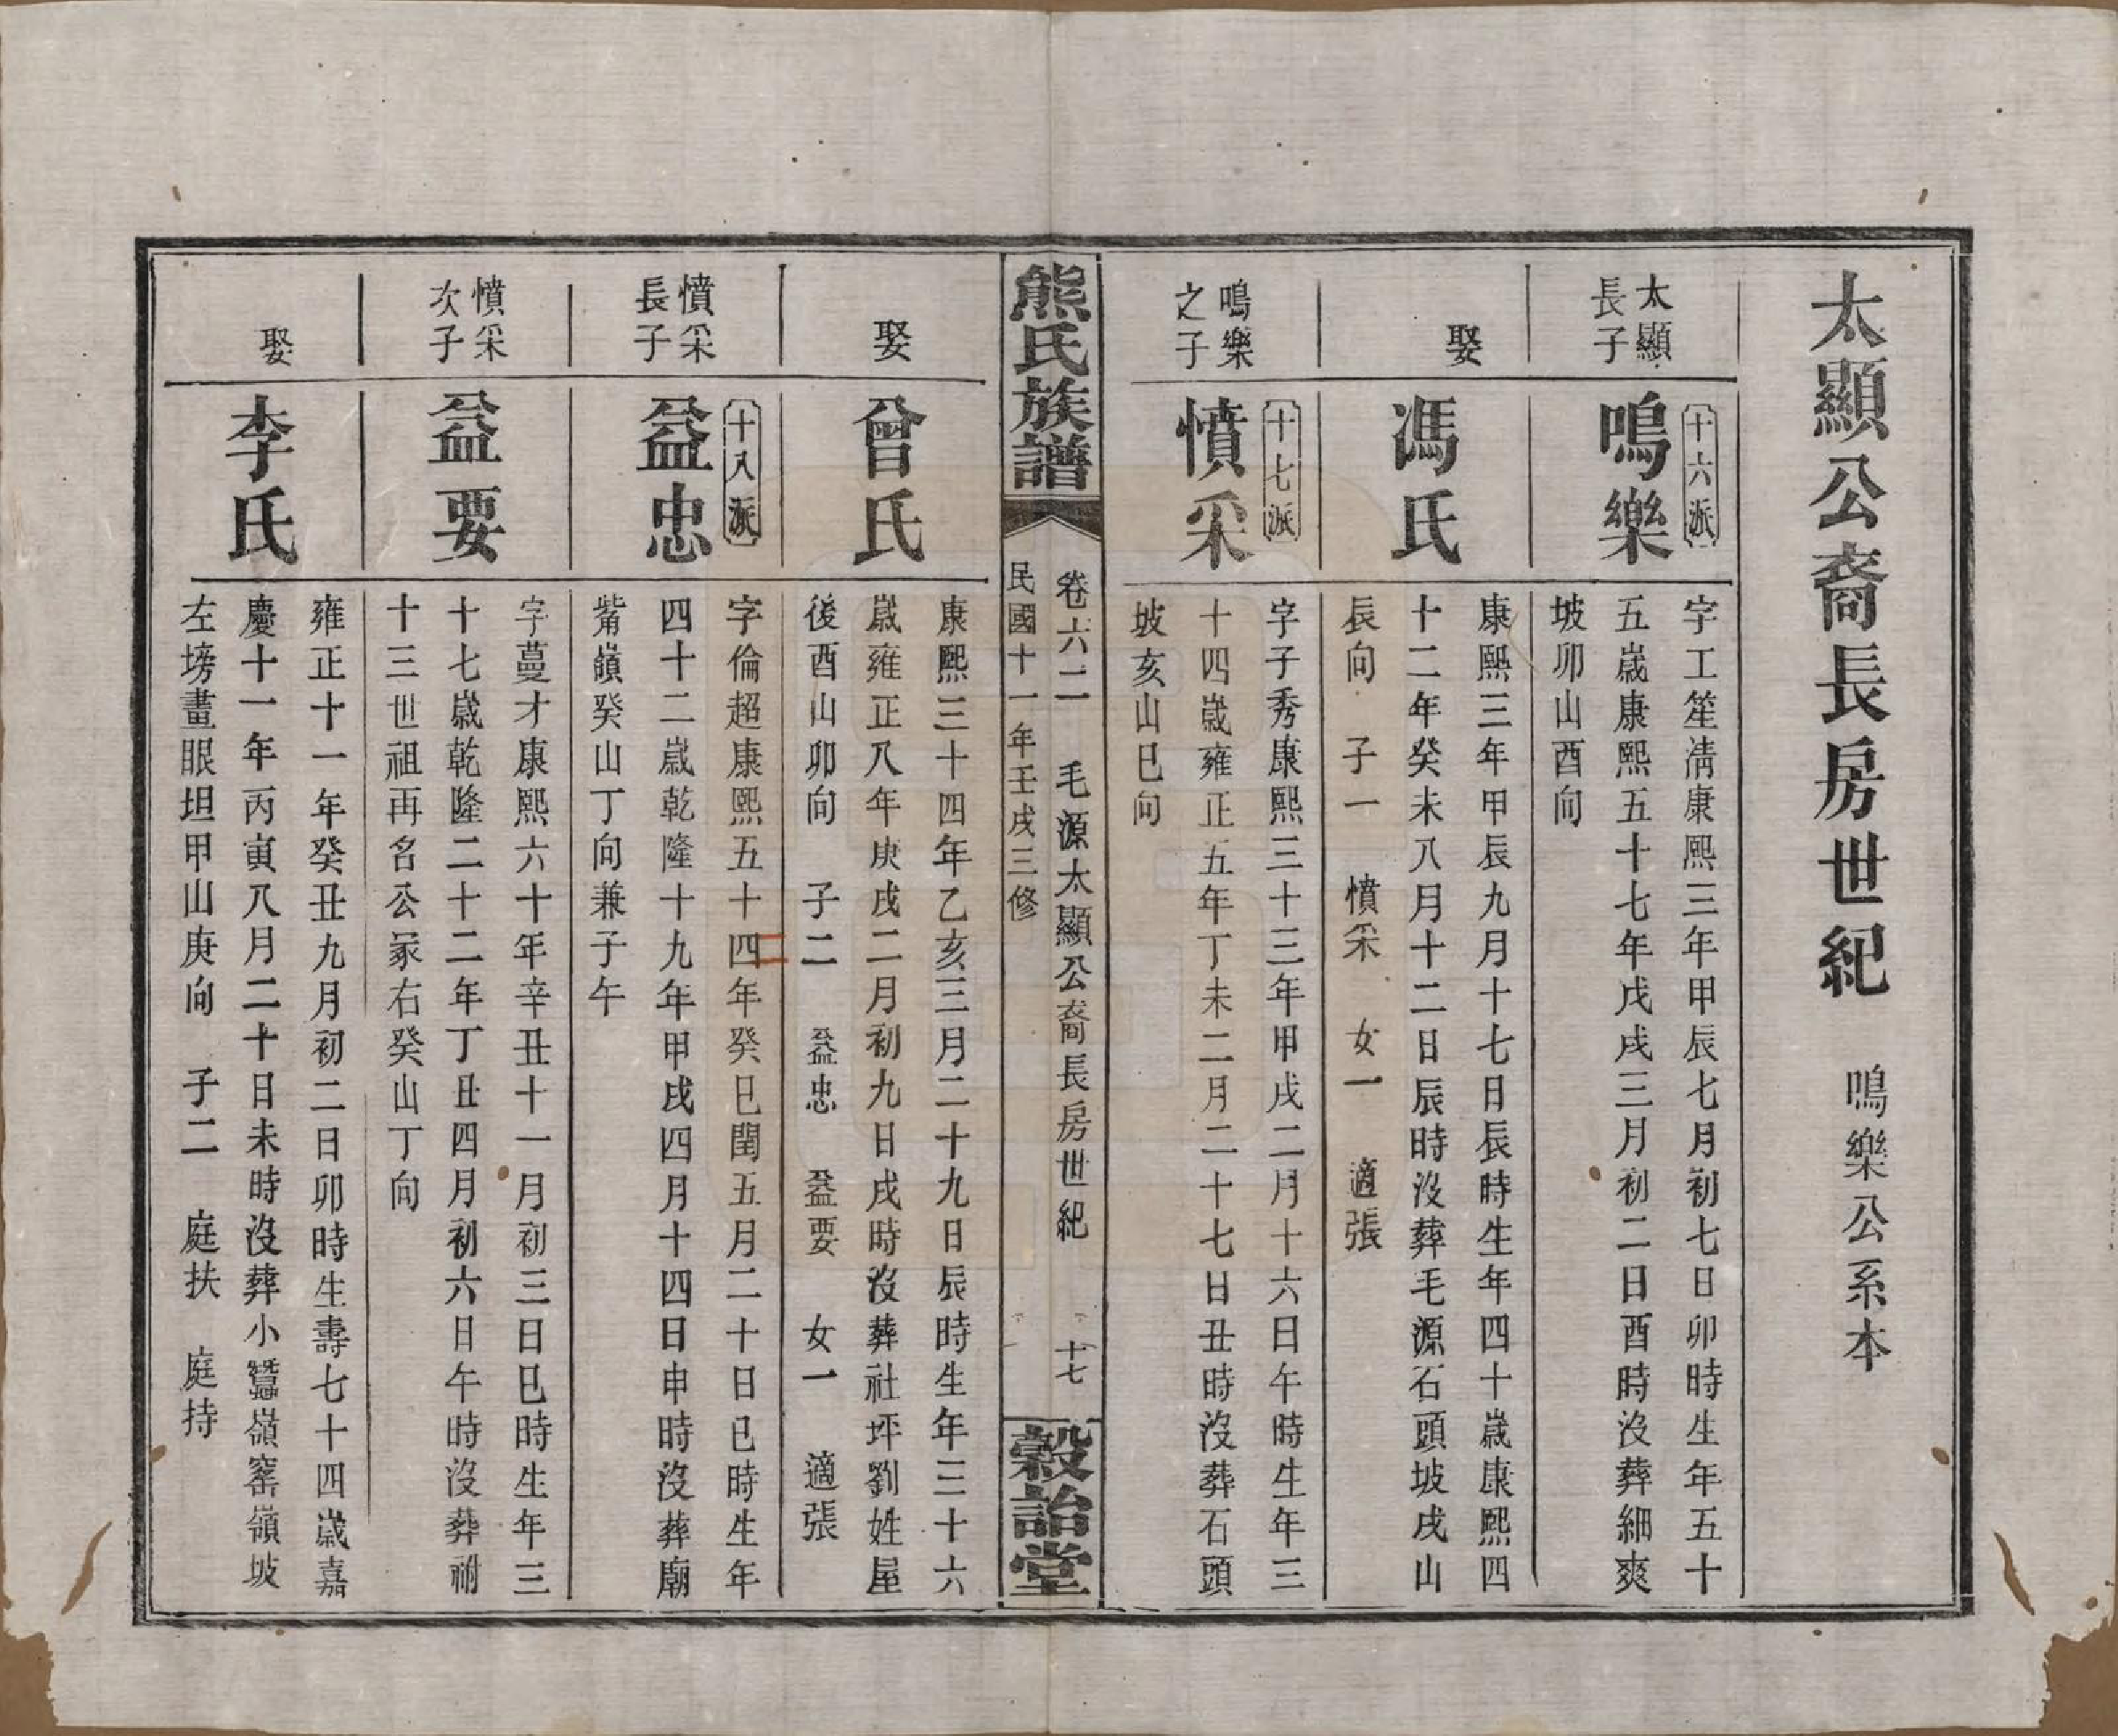 太顯公裔長房世紀　鳴樂公系本
太顯
長子
十六派
鳴樂
字工笙淸康熙三年甲辰七月初七日卯時生年五十
五歲康熙五十七年戊戌三月初二日酉時沒葬細爽
坡卯山酉向
娶
馮氏
康熙三年甲辰九月十七日辰時生年四十歲康熙四
十二年癸未八月十二日辰時沒葬毛源石頭坡戌山
辰向　子一　憤采　女一　適張
鳴樂
之子
十七派
憤采
字子秀康熙三十三年甲戌二月十六日午時生年三
十四歲雍正五年丁未二月二十七日丑時沒葬石頭
坡亥山巳向
熊氏族譜
卷六二　毛源太顯公裔長房世紀　十七
民國十一年壬戌三修
穀詒堂
娶
曾氏
康熙三十四年乙亥三月二十九日辰時生年三十六
歲雍正八年庚戌二月初九日戌時沒葬社坪劉姓屋
後酉山卯向　子二　益忠　益要　女一　適張
憤采
長子
十八派
益忠
字倫超康熙五十四年癸巳閏五月二十日巳時生年
四十二歲乾隆十九年甲戌四月十四日申時沒葬廟
觜嶺癸山丁向兼子午
憤采
次子
益要
字蔓才康熙六十年辛丑十一月初三日巳時生年三
十七歲乾隆二十二年丁丑四月初六日午時沒葬祔
十三世祖再名公冢右癸山丁向
娶
李氏
雍正十一年癸丑九月初二日卯時生壽七十四歲嘉
慶十一年丙寅八月二十日未時沒葬小蠶嶺窰嶺坡
左塝畫眼坦甲山庚向　子二　庭扶　庭持